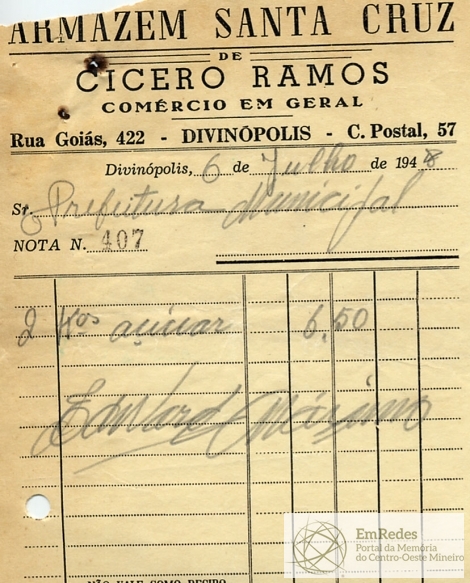 ARMAZEM SANTA CRUZ
DE
CICERO RAMOS
COMÉRCIO EM GERAL
Rua Goiás, 422 - DIVINÓPOLIS - C. Postal, 57
Divinópolis, 6 de Julho de 1948
Sr. Prefeitura Municipal
NOTA N. 407
2 Kos açúcar 6,50
Máximo
NÃO VALE COMO RECIBO
EmRedes
Portal da Memória
do Centro-Oeste Mineiro